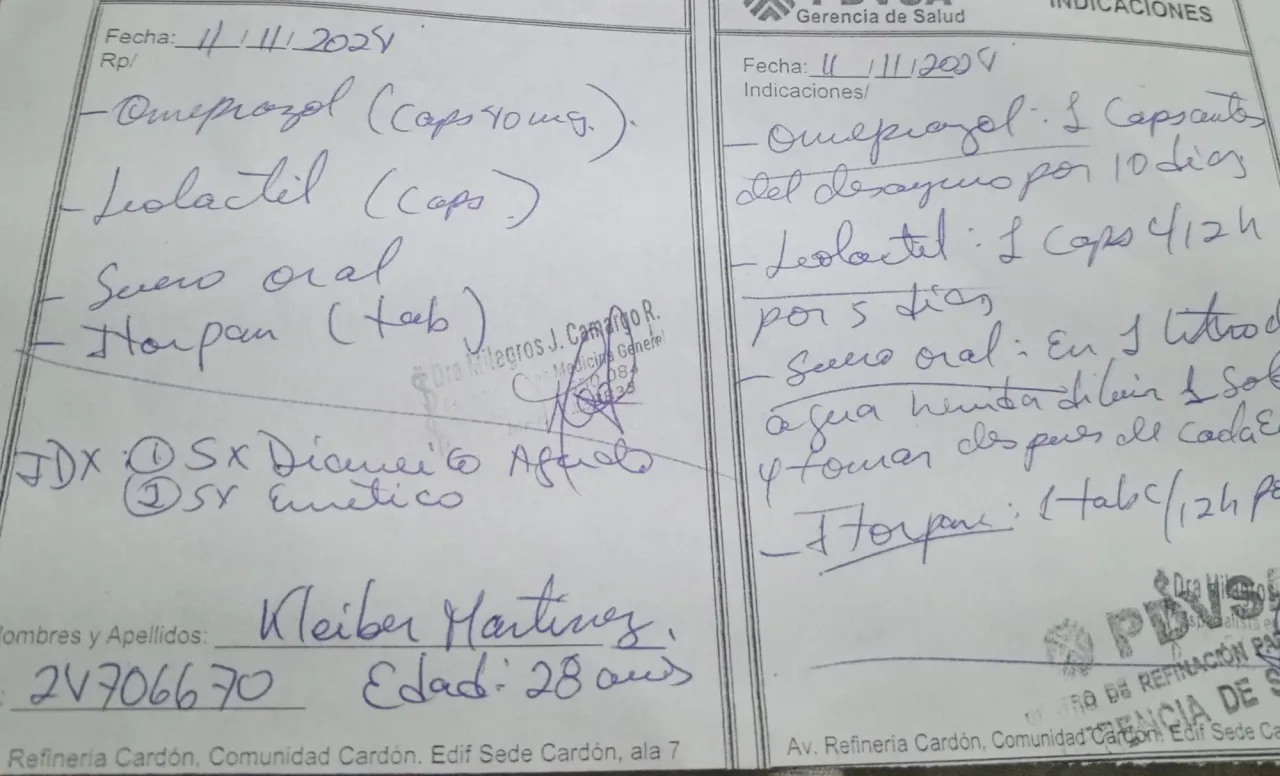 Fecha: 11/11/2024
Rp/
- Omeprazol (Caps 40 mg.).
- Leolactil (Caps)
- Suero oral
- Itorpan (tab)
Dra Milagros J. Camargo R.
Medicina General
IDX: ① SX Diarreico Agudo
② SX Emetico
Nombres y Apellidos: Kleiber Martinez.
24706670 Edad: 28 años
Refinería Cardón, Comunidad Cardón. Edif Sede Cardón, ala 7
Gerencia de Salud
INDICACIONES
Fecha: 11/11/2024
Indicaciones/
- Omeprazol: 1 Caps antes
del desayuno por 10 dias
- Leolactil: 1 Caps c/12h
por 5 dias
- Suero oral: En 1 litro d
agua hervida diluir 1 Sob
y tomar despues de cada E
- Itorpan: 1 tab c/12h po
PDVSA
Av. Refinería Cardón, Comunidad Cardón. Edif Sede Ca